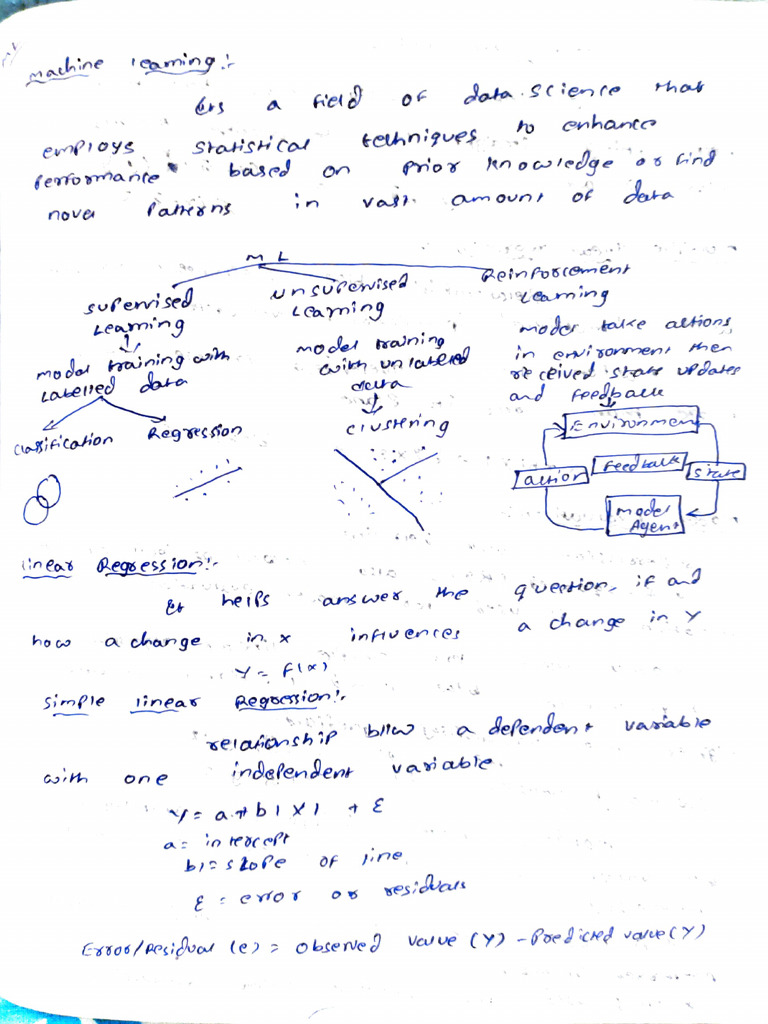 machine learning:-
Its a field of data science that
employs statistical techniques to enhance
performance based on prior knowledge or find
novel patterns in vast amount of data
ML
supervised learning
model training with labelled data
classification
Regression
unsupervised learning
model training with unlabelled data
clustering
Reinforcement learning
model take actions
in environment then
received state updates
and feedback
Environment
action
Feedback
state
model Agent
linear Regression:-
It helps answer the question, if and
how a change in x influences a change in Y
Y = F(x)
simple linear Regression:-
relationship b/w a dependent variable
with one independent variable.
Y = a + b1 X1 + ε
a = intercept
b1 = slope of line
ε = error or residuals
Error/Residual (e) = observed value (Y) - Predicted value (Y)